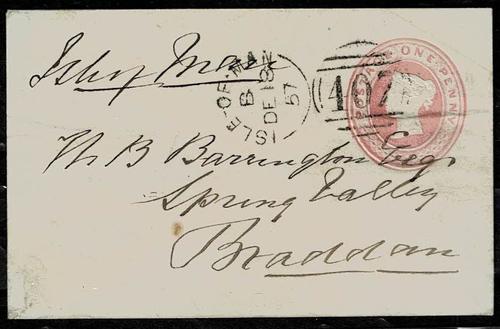 Isle of Man
ISLE-OF-MAN
B
DE 18
57
407
POSTAGE ONE PENNY
W B Barrington Esqr
Spring Valley
Braddan